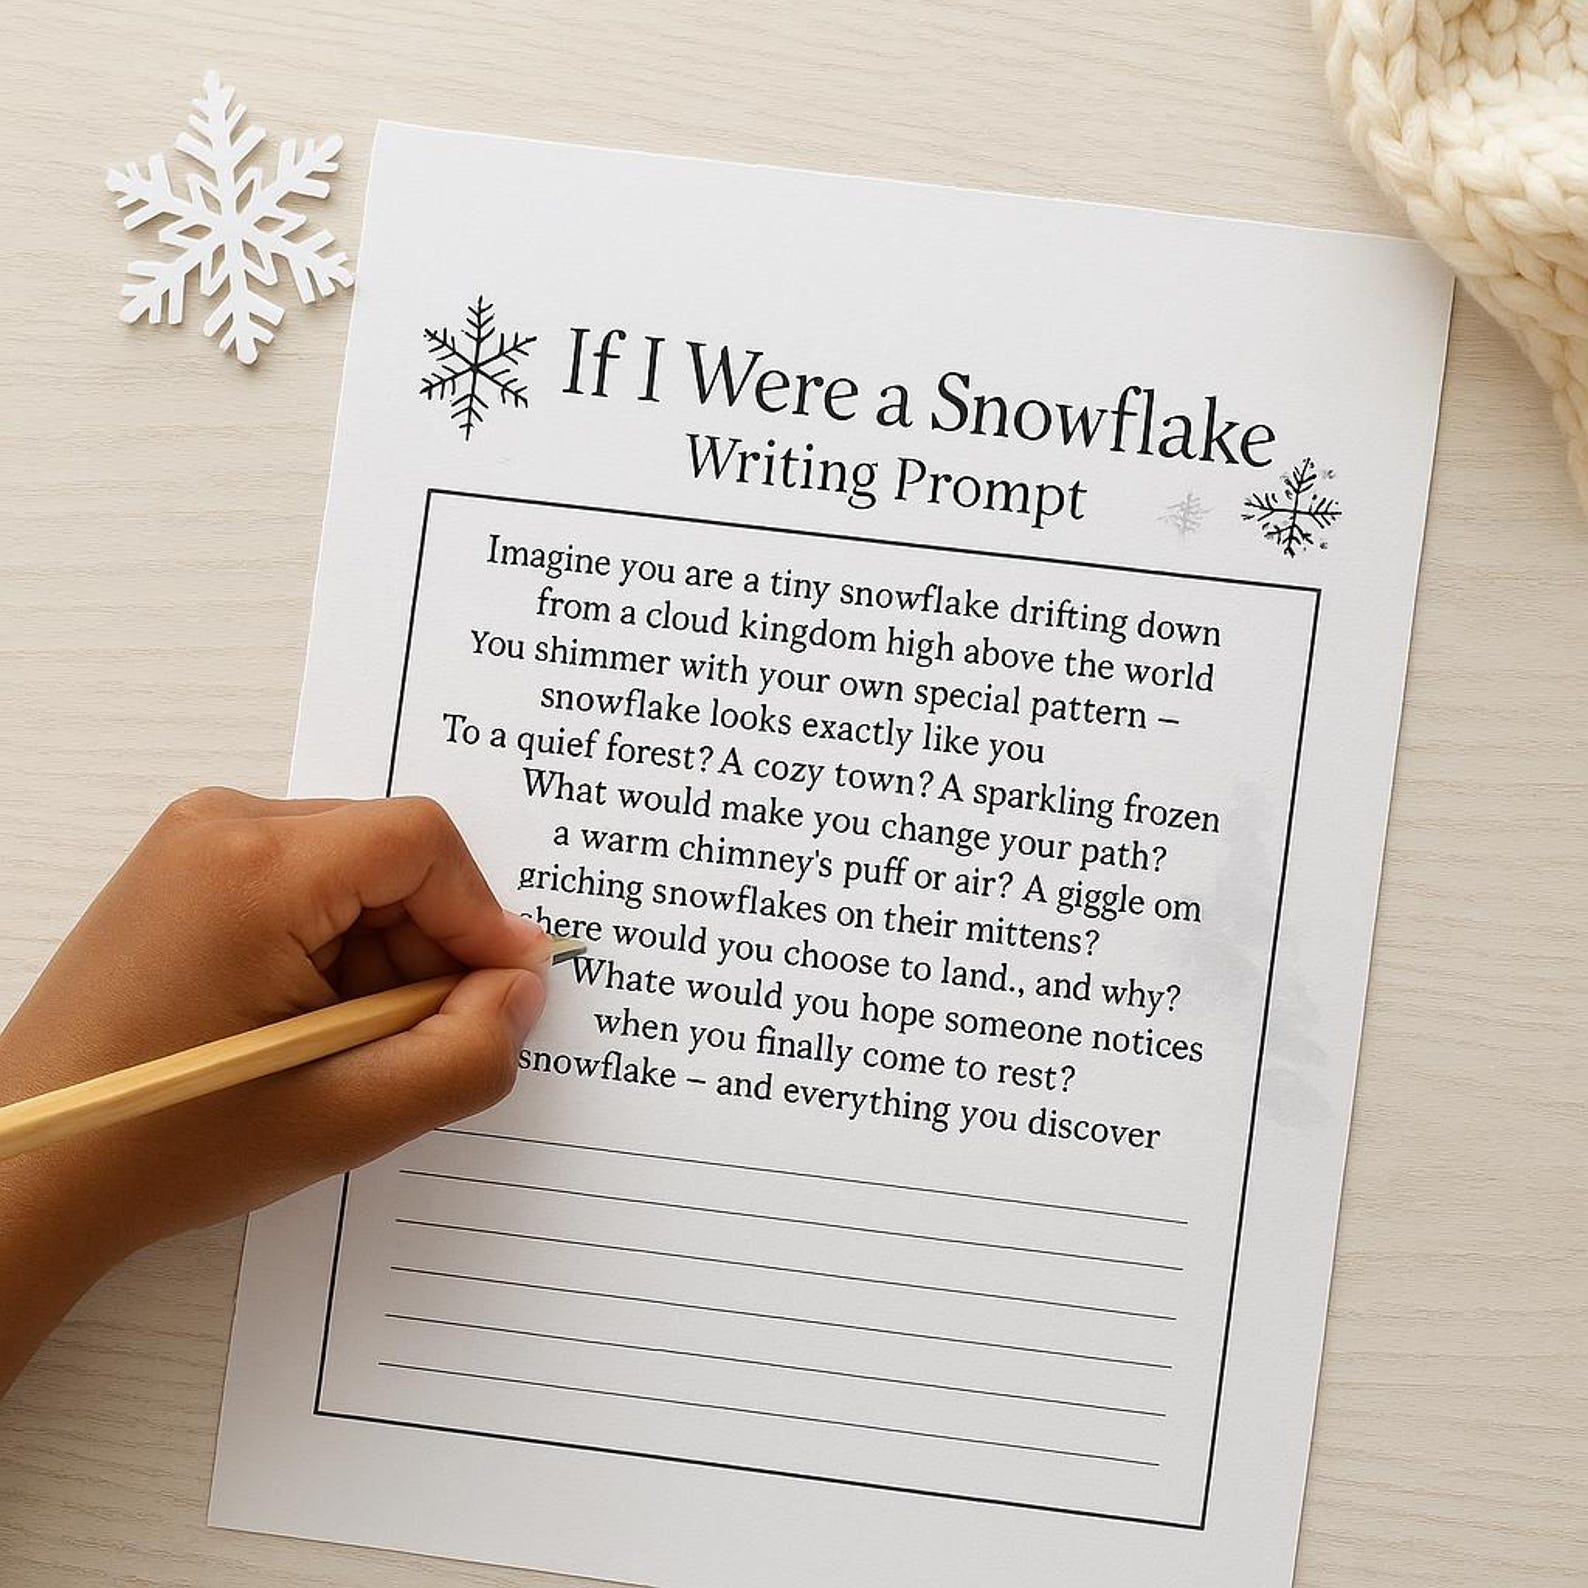 If I Were a Snowflake
Writing Prompt
Imagine you are a tiny snowflake drifting down
from a cloud kingdom high above the world
You shimmer with your own special pattern –
snowflake looks exactly like you
To a quief forest? A cozy town? A sparkling frozen
What would make you change your path?
a warm chimney's puff or air? A giggle om
griching snowflakes on their mittens?
would you choose to land., and why?
Whate would you hope someone notices
when you finally come to rest?
snowflake – and everything you discover